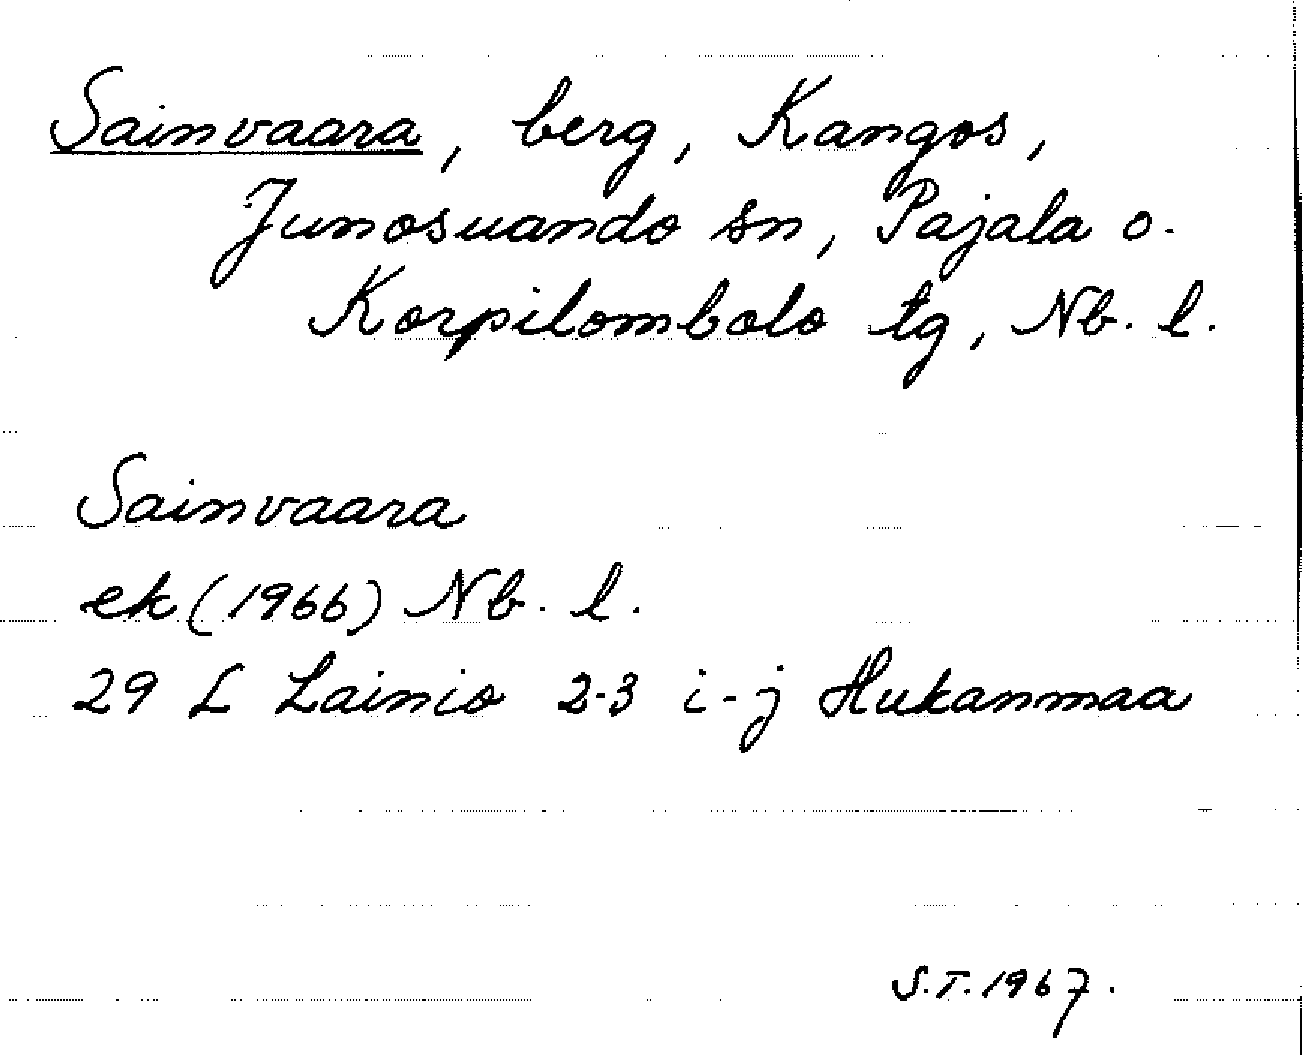 Sainvaara, berg, Kangos,
Junosuando sn, Pajala o.
Korpilombolo tg, Nb. l.
Sainvaara
ek (1966) Nb. l.
29 L Lainio 2-3 i-j Hukanmaa
S.T. 1967.